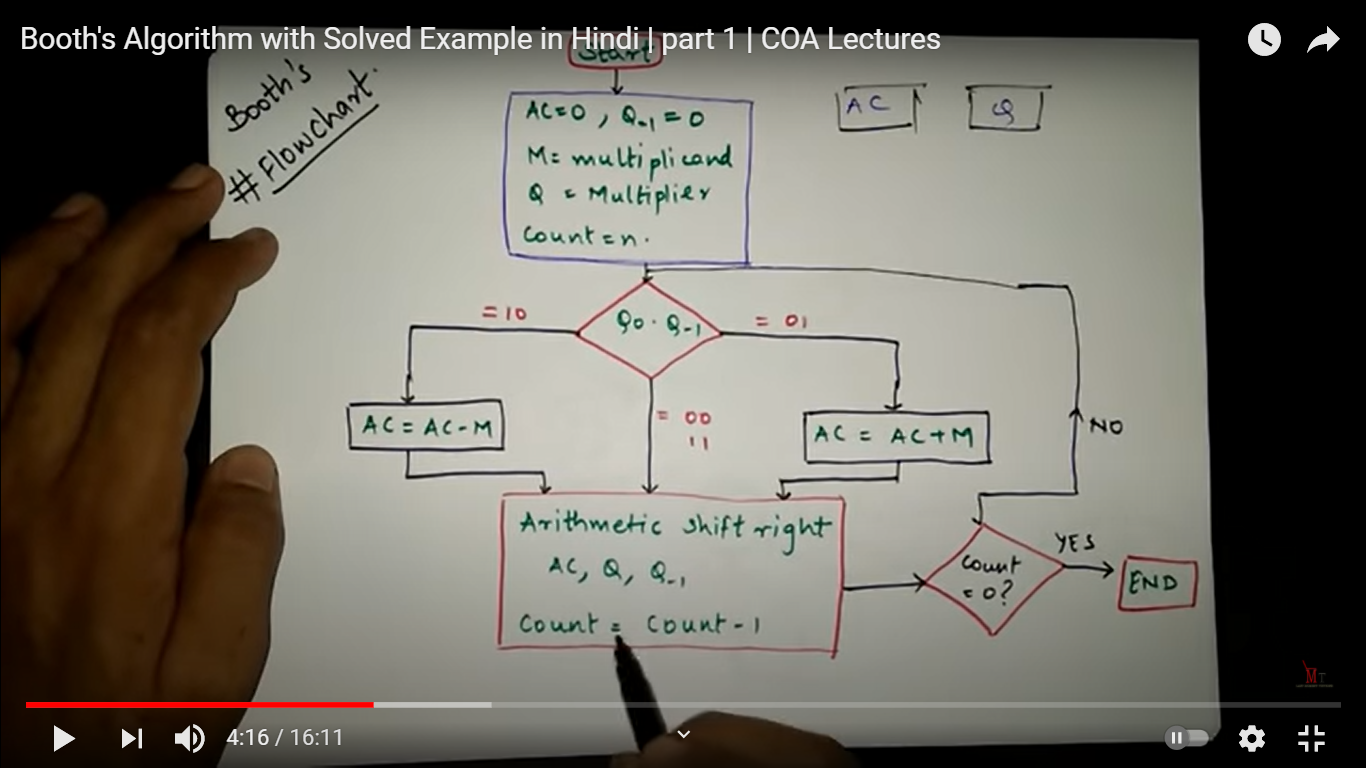 Booth's Algorithm with Solved Example in Hindi | part 1 | COA Lectures
Start
Booth's
#Flowchart.
AC=0, Q-1=0
M= multiplicand
Q = Multiplier
Count=n.
AC
Q
=10
Q0 . Q-1
= 01
= 00
11
AC = AC-M
AC = AC+M
NO
Arithmetic shift right
AC, Q, Q-1
Count = Count-1
Count
=0?
YES
END
MT
4:16 / 16:11